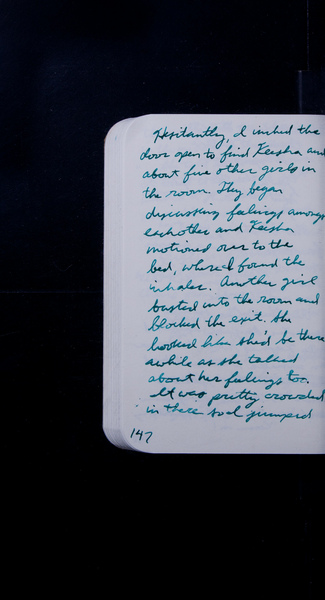 Hesitantly, I inched the
door open to find Keisha and
about five other girls in
the room. They began
discussing feelings amongst
eachother and Keisha
motioned over to the
bed, where I found the
inhaler. Another girl
busted into the room and
blocked the exit. She
looked like she'd be there
awhile as she talked
about her feelings too.
It was pretty crowded
in there so I jumped
147